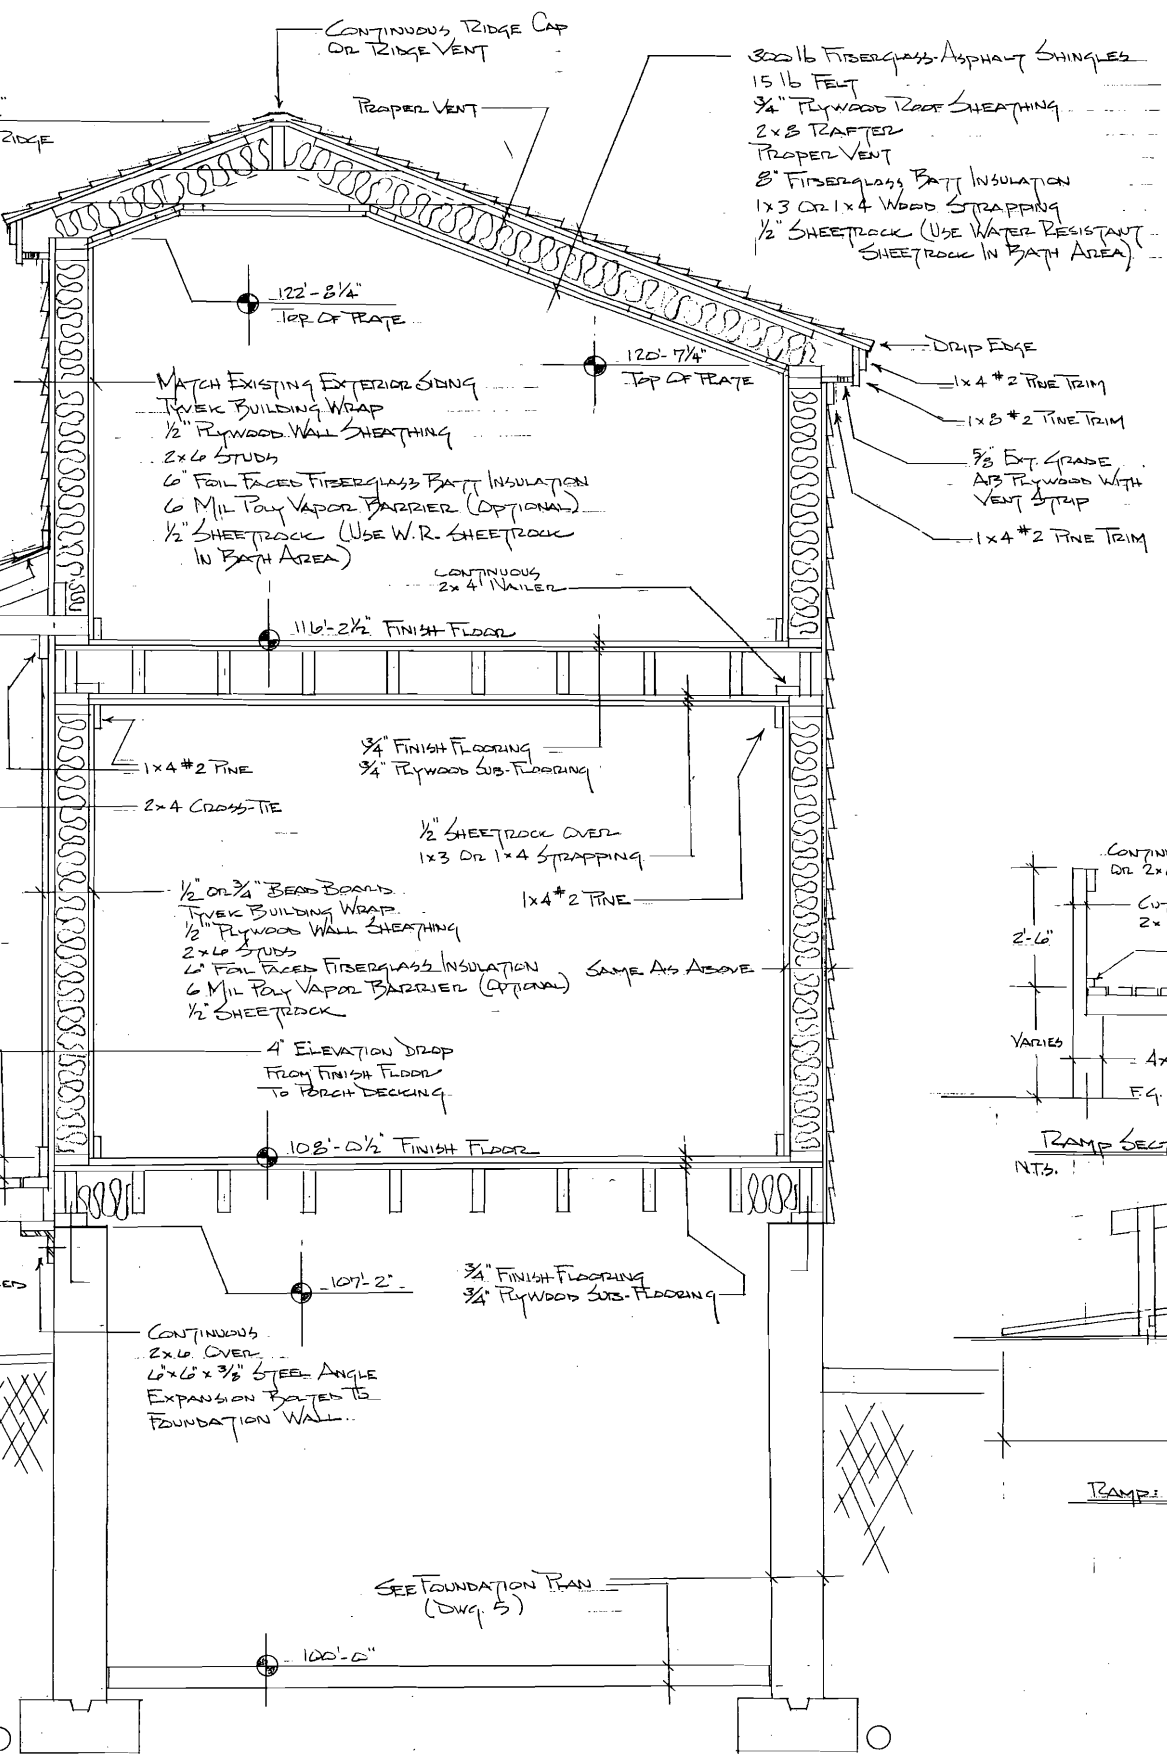 CONTINUOUS RIDGE CAP
OR RIDGE VENT
RIDGE
PROPER VENT
300 lb FIBERGLASS-ASPHALT SHINGLES
15 lb FELT
3/4" PLYWOOD ROOF SHEATHING
2x8 RAFTER
PROPER VENT
8" FIBERGLASS BATT INSULATION
1x3 OR 1x4 WOOD STRAPPING
1/2" SHEETROCK (USE WATER RESISTANT
SHEETROCK IN BATH AREA)
122'-8 1/4"
TOP OF PLATE
120'-7 1/4"
TOP OF PLATE
DRIP EDGE
1x4 #2 PINE TRIM
1x8 #2 PINE TRIM
5/8" EXT. GRADE
AB PLYWOOD WITH
VENT STRIP
1x4 #2 PINE TRIM
MATCH EXISTING EXTERIOR SIDING
TYVEK BUILDING WRAP
1/2" PLYWOOD WALL SHEATHING
2x6 STUDS
6" FOIL FACED FIBERGLASS BATT INSULATION
6 MIL POLY VAPOR BARRIER (OPTIONAL)
1/2" SHEETROCK (USE W.R. SHEETROCK
IN BATH AREA)
CONTINUOUS
2x4 NAILER
116'-2 1/2" FINISH FLOOR
3/4" FINISH FLOORING
3/4" PLYWOOD SUB-FLOORING
1x4 #2 PINE
2x4 CROSS-TIE
1/2" SHEETROCK OVER
1x3 OR 1x4 STRAPPING
1x4 #2 PINE
1/2" OR 3/4" BEAD BOARD
TYVEK BUILDING WRAP
1/2" PLYWOOD WALL SHEATHING
2x6 STUDS
6" FOIL FACED FIBERGLASS INSULATION
6 MIL POLY VAPOR BARRIER (OPTIONAL)
1/2" SHEETROCK
SAME AS ABOVE
4" ELEVATION DROP
FROM FINISH FLOOR
TO PORCH DECKING
108'-0 1/2" FINISH FLOOR
107'-2"
3/4" FINISH FLOORING
3/4" PLYWOOD SUB-FLOORING
CONTINUOUS
2x6 OVER
6"x6"x3/8" STEEL ANGLE
EXPANSION BOLTED TO
FOUNDATION WALL
SEE FOUNDATION PLAN
(DWG. 5)
100'-0"
OR 2x
2x
2'-6"
VARIES
4x
F.G.
RAMP SEC
N.T.S.
RAMP: